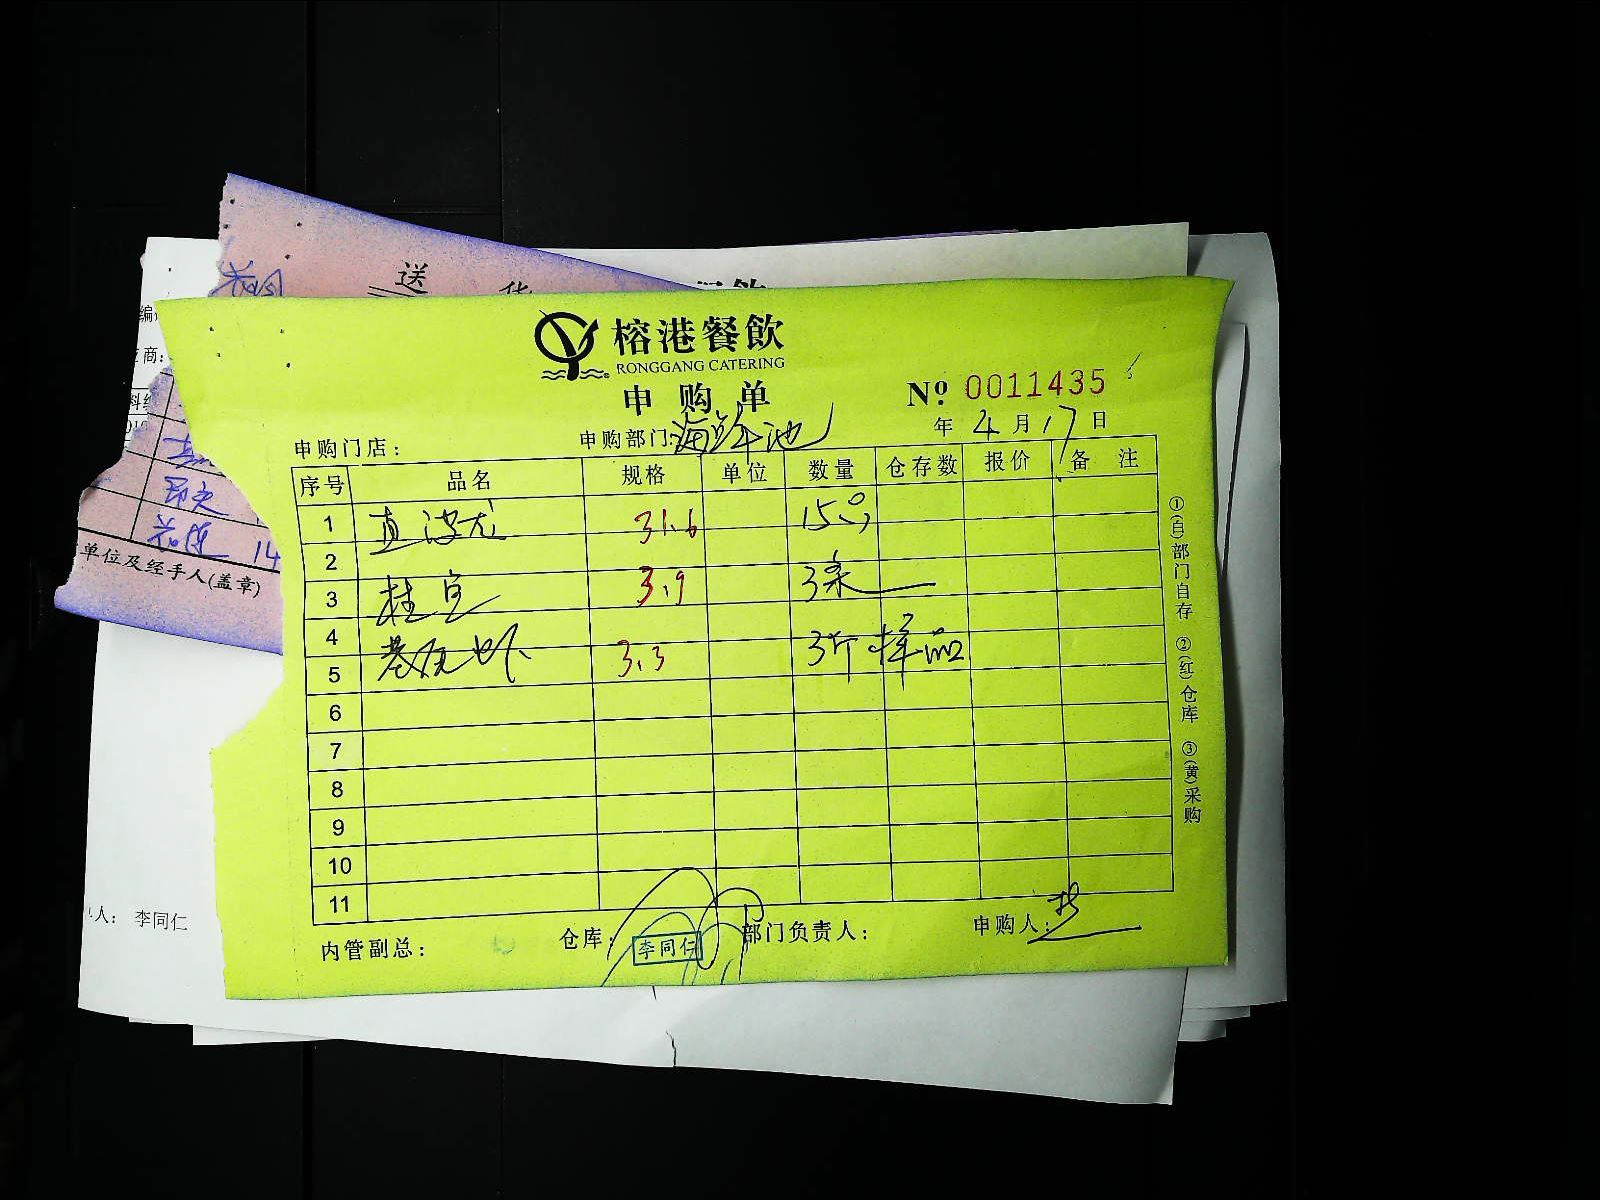 送 货
榕港餐飲
RONGGANG CATERING
申购单
№ 0011435
申购门店：
申购部门：海鲜池
年 4 月 17 日
序号 品名 规格 单位 数量 仓存数 报价 备 注
1 直波龙 31.6 15只
2
3 桂 3.9 3条
4
5 基尾虾 3.3 3斤 样品
6
7
8
9
10
11
内管副总：
仓库：
李同仁
部门负责人：
申购人：
①(白)部门自存 ②(红)仓库 ③(黄)采购
编
商：
料
花莲 14
单位及经手人(盖章)
人： 李同仁